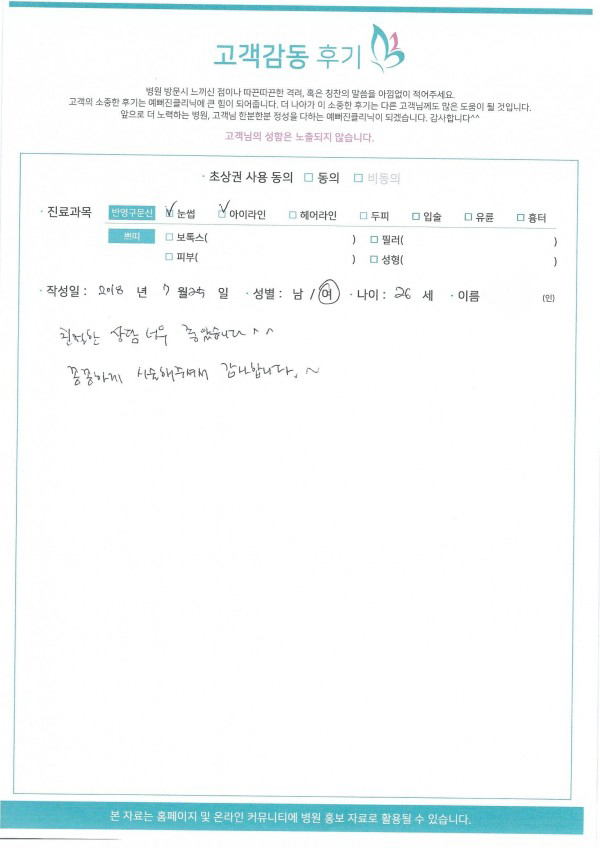 고객감동 후기
병원 방문시 느끼신 점이나 따끈따끈한 격려, 혹은 칭찬의 말씀을 아낌없이 적어주세요.
고객의 소중한 후기는 예뻐진클리닉에 큰 힘이 되어줍니다. 더 나아가 이 소중한 후기는 다른 고객님께도 많은 도움이 될 것입니다.
앞으로 더 노력하는 병원, 고객님 한분한분 정성을 다하는 예뻐진클리닉이 되겠습니다. 감사합니다^^
고객님의 성함은 노출되지 않습니다.
· 초상권 사용 동의 □ 동의 □ 비동의
· 진료과목 반영구문신 ☑ 눈썹 ☑ 아이라인 □ 헤어라인 □ 두피 □ 입술 □ 유륜 □ 흉터
쁘띠 □ 보톡스( ) □ 필러( )
□ 피부( ) □ 성형( )
· 작성일 : 2018 년 7 월 25 일 · 성별 : 남 / 여 · 나이 : 26 세 · 이름 (인)
친절한 상담 너무 좋았습니다 ^^
꼼꼼하게 시술해주셔서 감사합니다. ~
본 자료는 홈페이지 및 온라인 커뮤니티에 병원 홍보 자료로 활용될 수 있습니다.